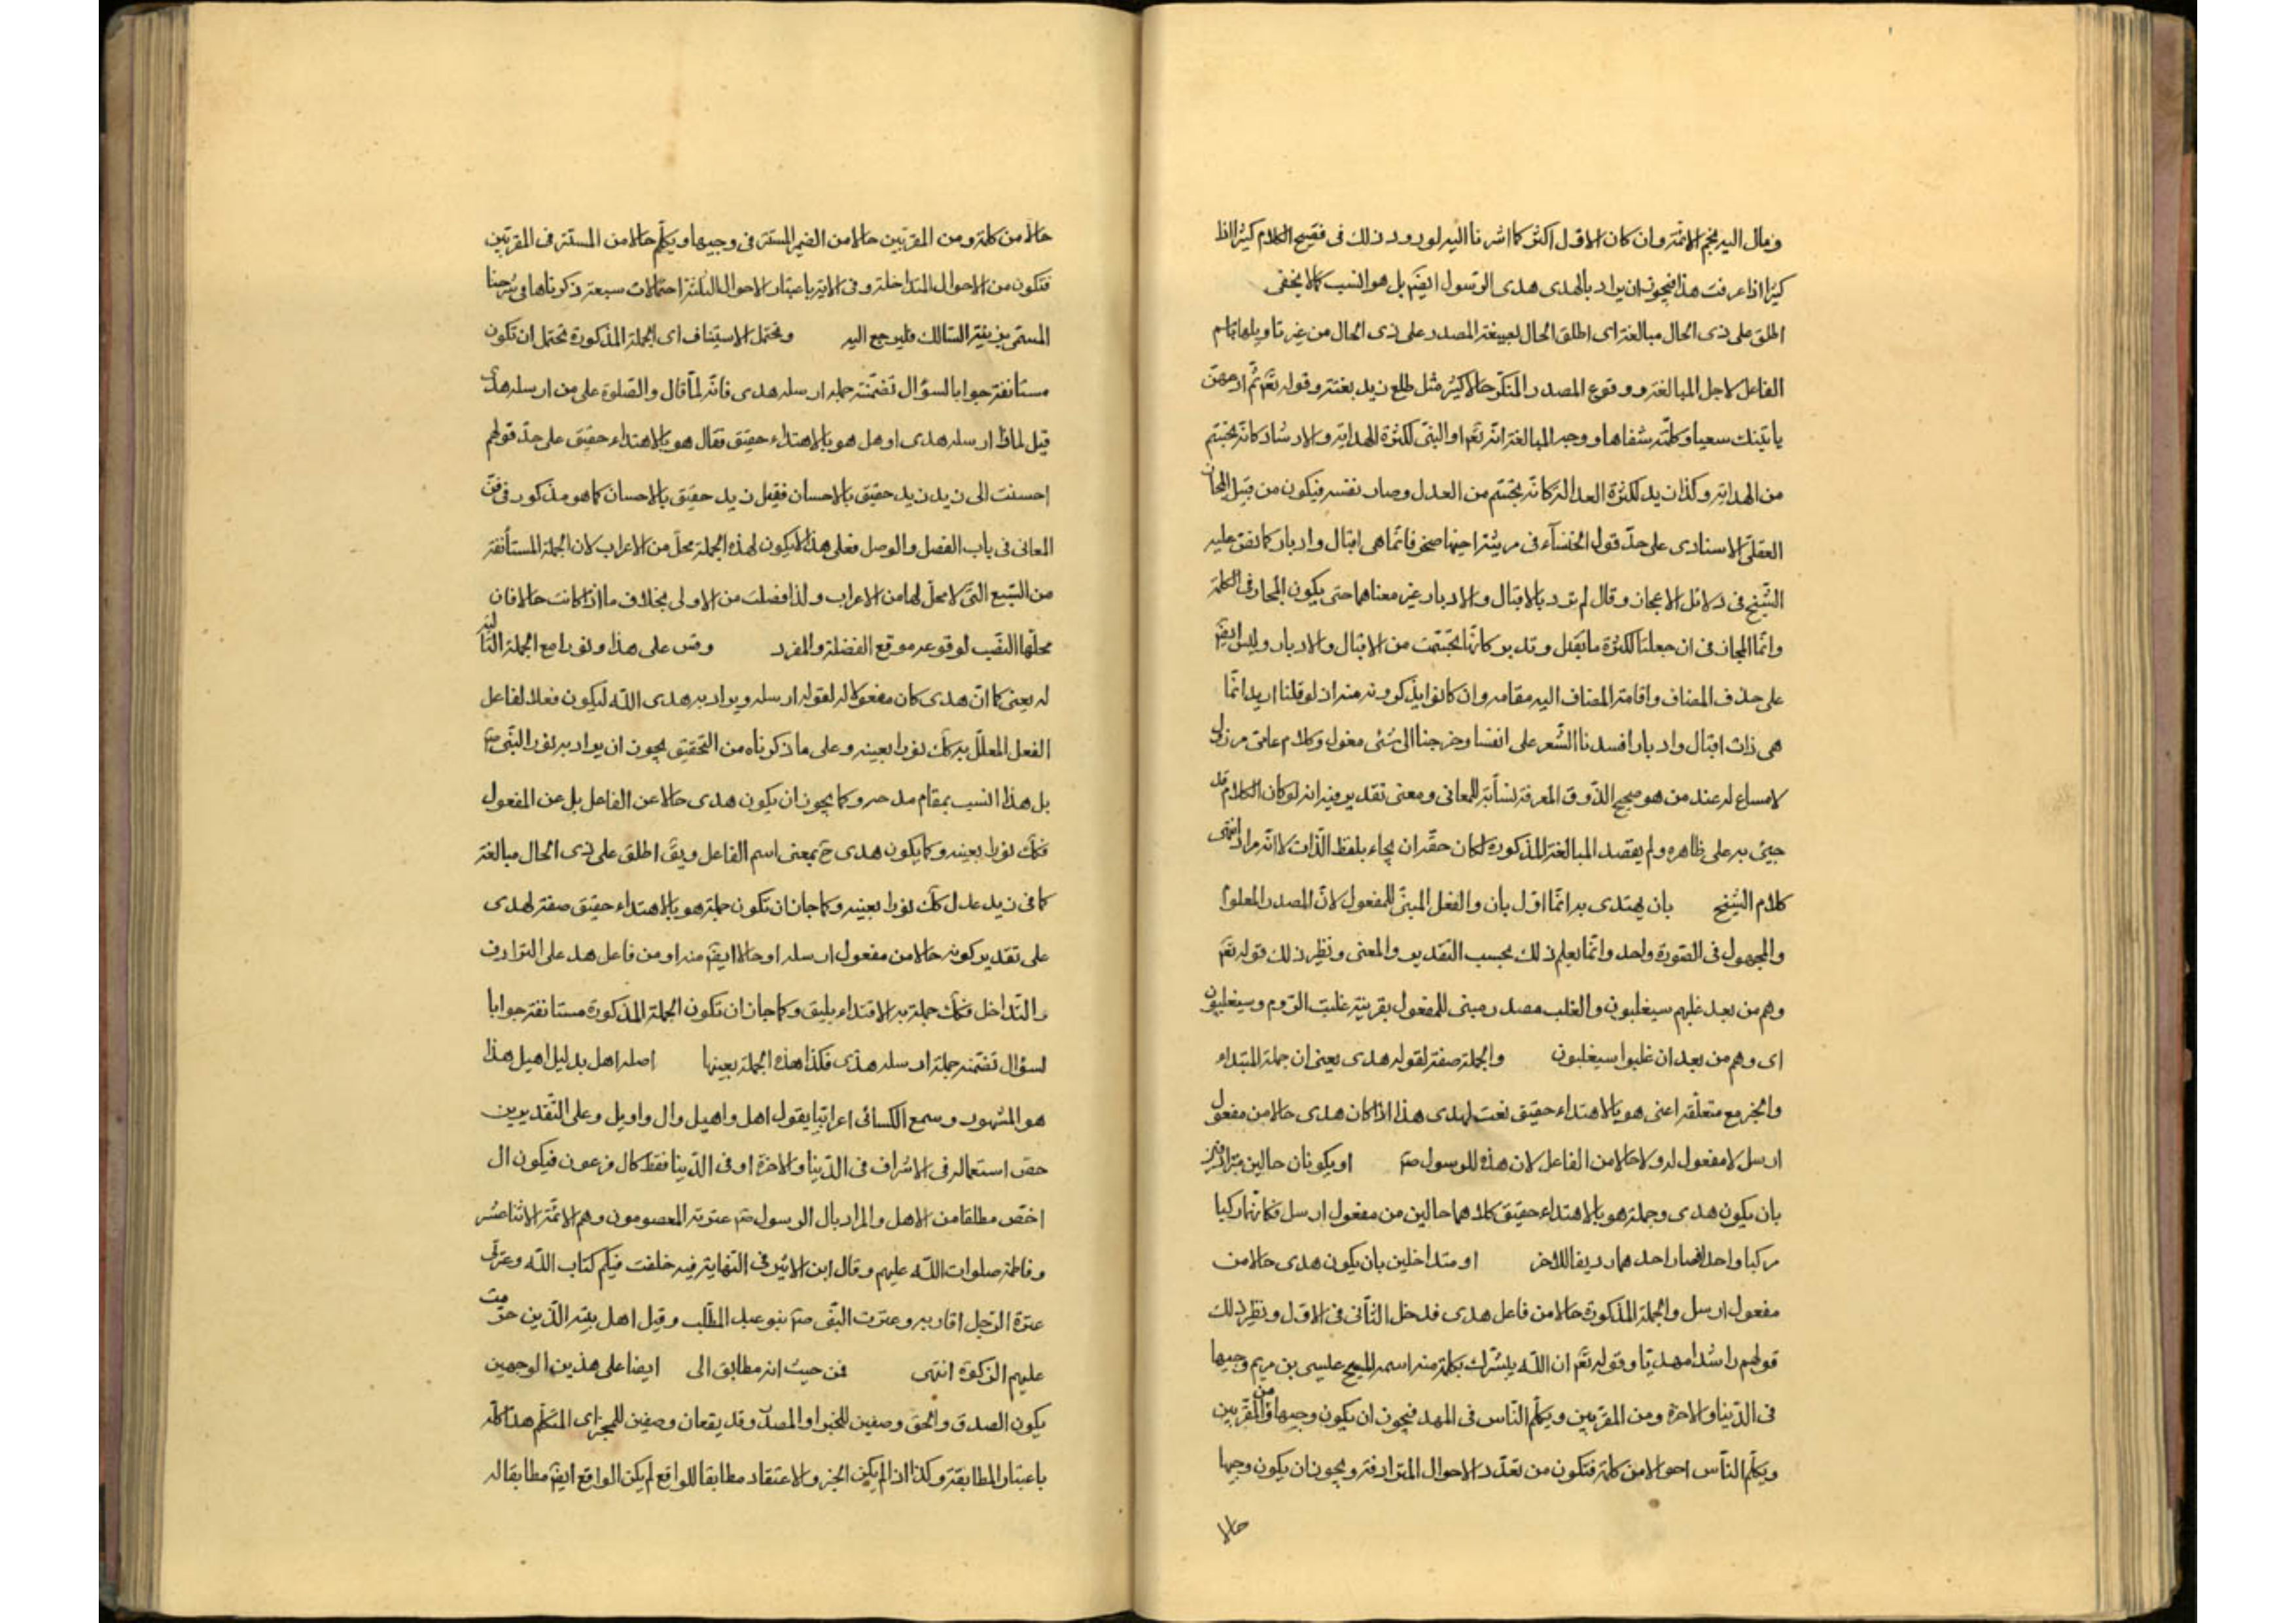 ومال اليه نجم الائمة وان كان الاول اكثر كما اشرنا اليه لورود ذلك فى فصيح الكلام كثيرا اذا
كثيرا اذا عرفت هذا فيجوز ان يراد بالهدى هدى الرسول ايضم بل هو انسب كما لا يخفى
اطلق على ذى الحال مبالغة اى اطلق الحال بصيغة المصدر على ذى الحال من غير تاويلها باسم
الفاعل لاجل المبالغة ووقوع المصدر المنكر حالا كثير مثل طلع زيد بغتة وقوله تعم ثم ادعهن
ياتينك سعيا وكلمته شفاها ووجه المبالغة انه تعم او النبى لكثرة الهداية والارشاد كانه تجسم
من الهداية وكذا زيد لكثرة العدالة كانه تجسم من العدل وصار نفسه فيكون من قبيل المجاز
العقلى الاسنادى على حد قول الخنسآء فى مرثية اخيها صخر فانما هى اقبال وادبار كما نص عليه
الشيخ فى دلائل الاعجاز وقال لم ترد بالاقبال والادبار غير معناهما حتى يكون المجاز فى الكلمة
وانما المجاز فى ان جعلتها لكثرة ما تقبل وتدبر كانها تجسمت من الاقبال والادبار وليس ايضم
على حذف المضاف واقامة المضاف اليه مقامه وان كانوا يذكرونه منه اذ لو قلنا اريد انما
هى ذات اقبال وادبار افسدنا الشعر على انفسنا وخرجنا الى شئ مغسول وكلام عامى مرذول
لا مساغ له عند من هو صحيح الذوق والمعرفة نسابة للمعانى ومعنى تقديره فيه انه لو كان الكلام قد
جيئ به على ظاهره ولم يقصد المبالغة المذكورة لكان حقه ان يجاء بلفظ الذات لا انه مراد انتهى
كلام الشيخ بان يهتدى به انما اول بان والفعل المبنى للمفعول لان المصدر المعلوم
والمجهول فى الصورة واحد وانما يعلم ذلك بحسب التقدير والمعنى ونظير ذلك قوله تعم
وهم من بعد غلبهم سيغلبون والغلب مصدر مبنى للمفعول بقرينة غلبت الروم وسيغلبون
اى وهم من بعد ان غلبوا سيغلبون والجملة صفة لقوله هدى يعنى ان جملة المبتداء
والخبر مع متعلقه اعنى هو بالاهتداء حقيق نعت لهدى هذا اذا كان هدى حالا من مفعول
ارسل لا مفعول له ولا حالا من الفاعل لان هذه للرسول صم او يكونان حالين مترادفين
بان يكون هدى وجملة هو بالاهتداء حقيق كلاهما حالين من مفعول ارسل فكانهما ركبا
مركبا واحدا فصار احدهما رديفا للاخر او متداخلين بان يكون هدى حالا من
مفعول ارسل والجملة المذكورة حالا من فاعل هدى فدخل الثانى فى الاول ونظير ذلك
قولهم راشدا مهديا وقوله تعم ان الله يبشرك بكلمة منه اسمه المسيح عيسى بن مريم وجيها
فى الدنيا والاخرة ومن المقربين ويكلم الناس فى المهد فيجوز ان يكون وجيها ومن المقربين
ويكلم الناس احوالا من كلمة فتكون من تعدد الاحوال المترادفة ويجوز ان يكون وجيها
حالا
حالا من كلمة ومن المقربين حالا من الضمير المستتر فى وجيها ويكلم حالا من المستتر فى المقربين
فتكون من الاحوال المتداخلة وفى الاية باعتبار الاحوال الثلثة احتمالات سبعة ذكرناها فى شرحنا
المسمى بزينة السالك فليرجع اليه ويحتمل الاستيناف اى الجملة المذكورة تحتمل ان تكون
مستانفة جوابا لسؤال تضمنته جملة ارسله هدى فانه لما قال والصلوة على من ارسله هدى
قيل لماذا ارسله هدى او هل هو بالاهتداء حقيق فقال هو بالاهتداء حقيق على حد قولهم
احسنت الى زيد زيد حقيق بالاحسان فقيل زيد حقيق بالاحسان كما هو مذكور فى فن
المعانى فى باب الفصل والوصل فعلى هذا لا يكون لهذه الجملة محل من الاعراب لان الجملة المستأنفة
من السبع التى لا محل لها من الاعراب ولذا فصلت من الاولى بخلاف ما اذا كانت حالا فان
محلها النصب لوقوعه موقع الفضلة والمفرد وقس على هذا ونورا مع الجملة التالية
له يعنى كما ان هدى كان مفعولا له لقوله ارسله ويراد به هدى الله ليكون فعلا لفاعل
الفعل المعلل به كك نورا بعينه وعلى ما ذكرناه من التحقيق يجوز ان يراد به نور النبى صم
بل هذا انسب بمقام مدحه وكما يجوز ان يكون هدى حالا عن الفاعل بل عن المفعول
فكك نورا بعينه وكما يكون هدى ح بمعنى اسم الفاعل ويق اطلق على ذى الحال مبالغة
كما فى زيد عدل كك نورا بعينه وكما جاز ان تكون جملة هو بالاهتداء حقيق صفة لهدى
على تقدير كونه حالا من مفعول ارسله او حالا ايضم منه او من فاعل هد على الترادف
والتداخل فكك جملة به الاقتداء يليق وكما جاز ان تكون الجملة المذكورة مستانفة جوابا
لسؤال تضمنه جملة ارسله هدى فكذا هذه الجملة بعينها اصله اهل بدليل اهيل هذا
هو المشهور وسمع الكسائى اعرابيا يقول اهل واهيل وال واويل وعلى التقديرين
خص استعماله فى الاشراف فى الدنيا والاخرة او فى الدنيا فقط كال فرعون فيكون ال
اخص مطلقا من الاهل والمراد بال الرسول صم عترته المعصومون وهم الائمة الاثنا عشر
وفاطمة صلوات الله عليهم وقال ابن الاثير فى النهاية فيه خلفت فيكم كتاب الله وعترتى
عترة الرجل اقاربه وعترت النبى صم بنو عبد المطلب وقيل اهل بيته الذين حرمت
عليهم الزكوة انتهى فمن حيث انه مطابق الى ايضا على هذين الوجهين
يكون الصدق والحق وصفين للخبر او المصدق وقد يقعان وصفين للمخبر اى المتكلم هذا كله
باعتبار المطابقة وكذا اذا لم يكن الخبر والاعتقاد مطابقا للواقع لم يكن الواقع ايضم مطابقا له